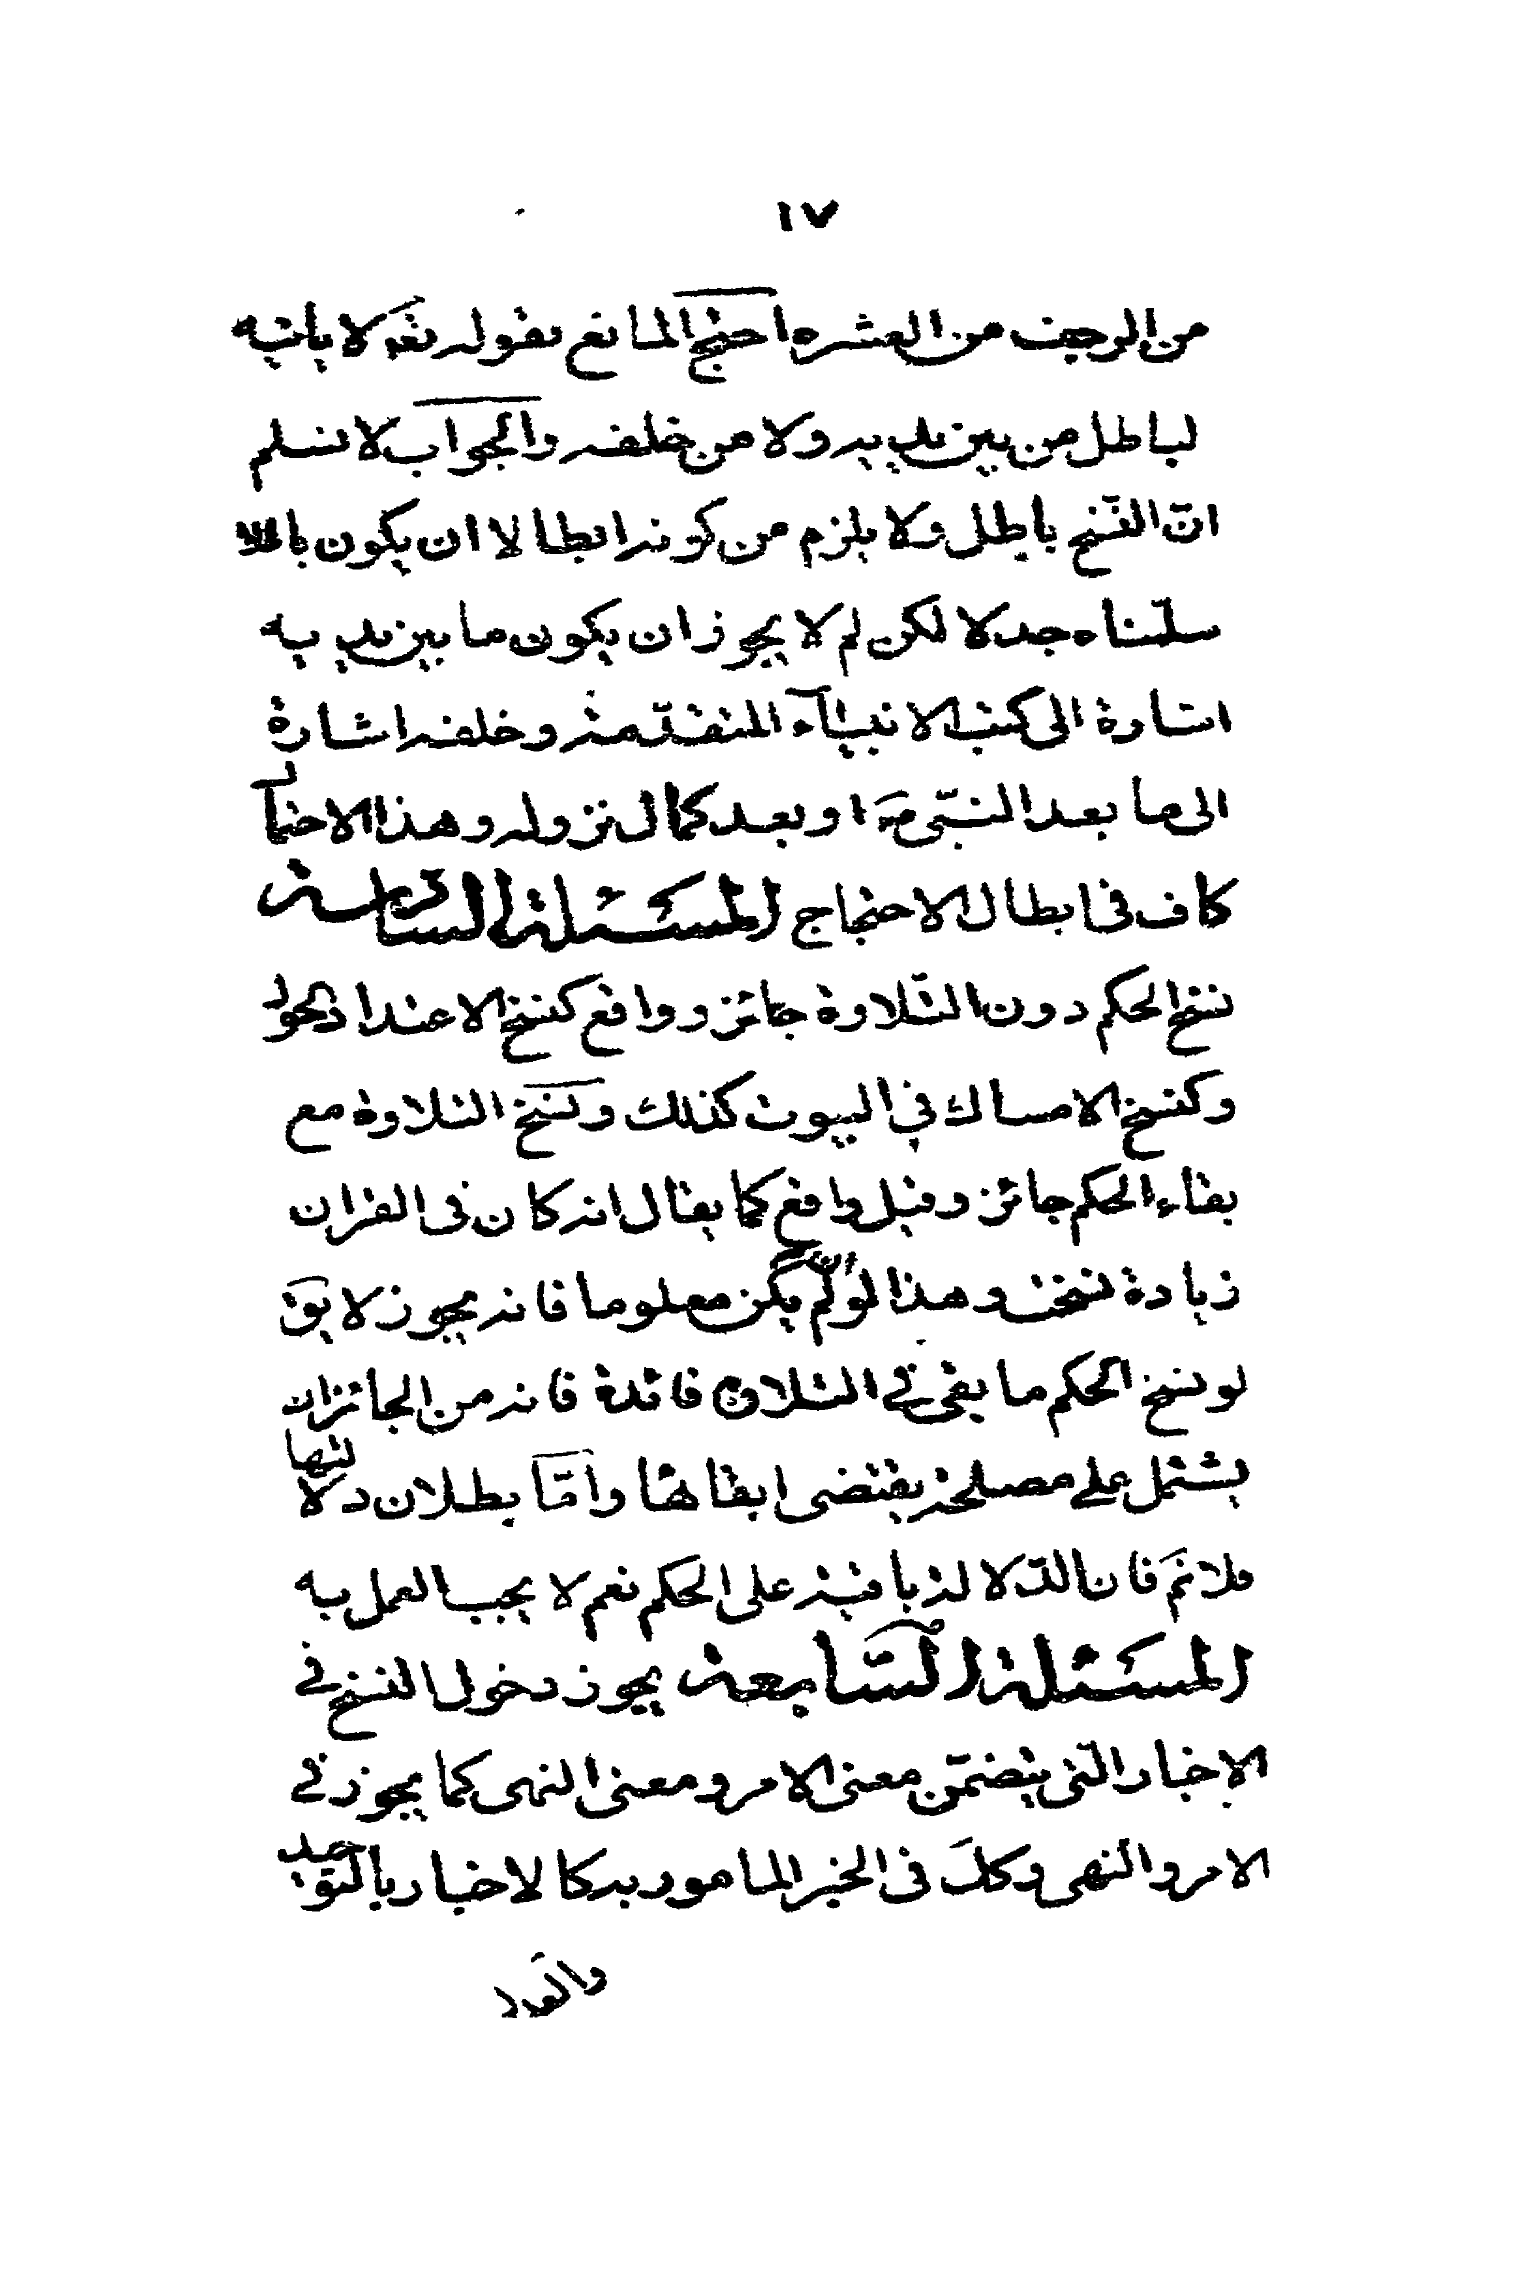 ١٧
من الرحيف من العشره احتج المانع بقوله تعم لا ياتيه
لباطل من بين يديه ولا من خلفه والجواب لا نسلم
انّ النسخ باطل ولا يلزم من كونه ابطالا ان يكون باطلا
سلمناه جدلا لكن لم لا يجوز ان يكون ما بين يديه
اشارة الى كتب الانبياء المتقدّمة وخلفه اشارة
الى ما بعد النبّى صم او بعد كمال نزوله وهذا الاحتمال
كاف فى ابطال الاحتجاج المسئلة السادسة
نسخ الحكم دون التلاوة جائز وواقع كنسخ الاعتداد بالحول
وكنسخ الامساك في البيوت كذلك ونسخ التلاوة مع
بقاء الحكم جائز وقيل واقع كما يقال انه كان فى القران
زيادة نسخت وهذا لو لم يكن معلوما فانه يجوز لا يق
لو نسخ الحكم ما بقى في التلاوة فائدة فانه من الجائز ان
يشتمل على مصلحة يقتضى ابقائها وامّا بطلان دلالتها
فلا نم فان الدّلالة باقية على الحكم نعم لا يجب العمل به
المسئلة السّابعة يجوز دخول النسخ في
الاخبار التى يتضمّن معنى الامر ومعنى النهى كما يجوز في
الامر والنهى وكل فى الخبر المامور به كالاخبار بالتوحيد